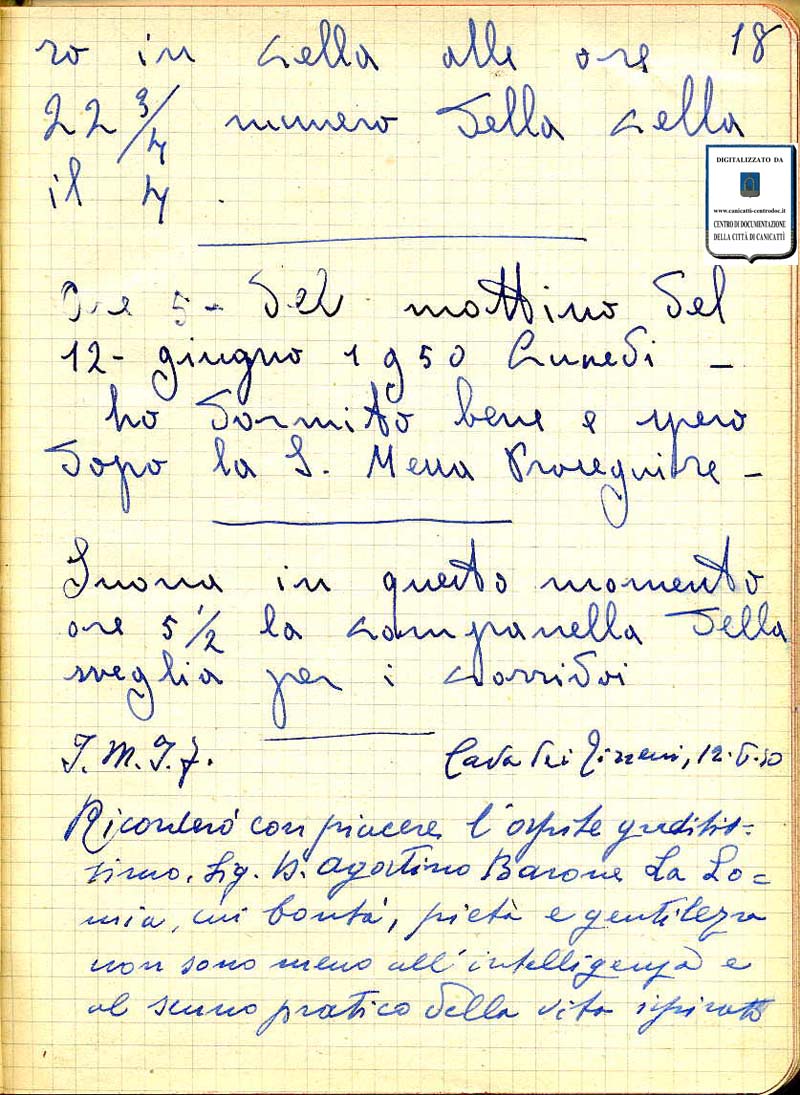 18
ro in cella alle ore
22 3/4 numero della cella
il 4.
DIGITALIZZATO DA
www.canicatti-centrodoc.it
CENTRO DI DOCUMENTAZIONE
DELLA CITTÀ DI CANICATTÌ
Ore 5- del mattino del
12- giugno 1950 Lunedi -
ho dormito bene e spero
dopo la S. Messa Proseguire -
Suona in questo momento
ore 5 1/2 la campanella della
sveglia per i corridoi
Cava dei Tirreni, 12.
Ricorderò con piacere l'ospite graditis-
simo. Sig. D. Agostino Barone La Lo=
mia, cui bontà, pietà e gentilezza
non sono meno all'intelligenza e
al senno pratico della vita ispirato